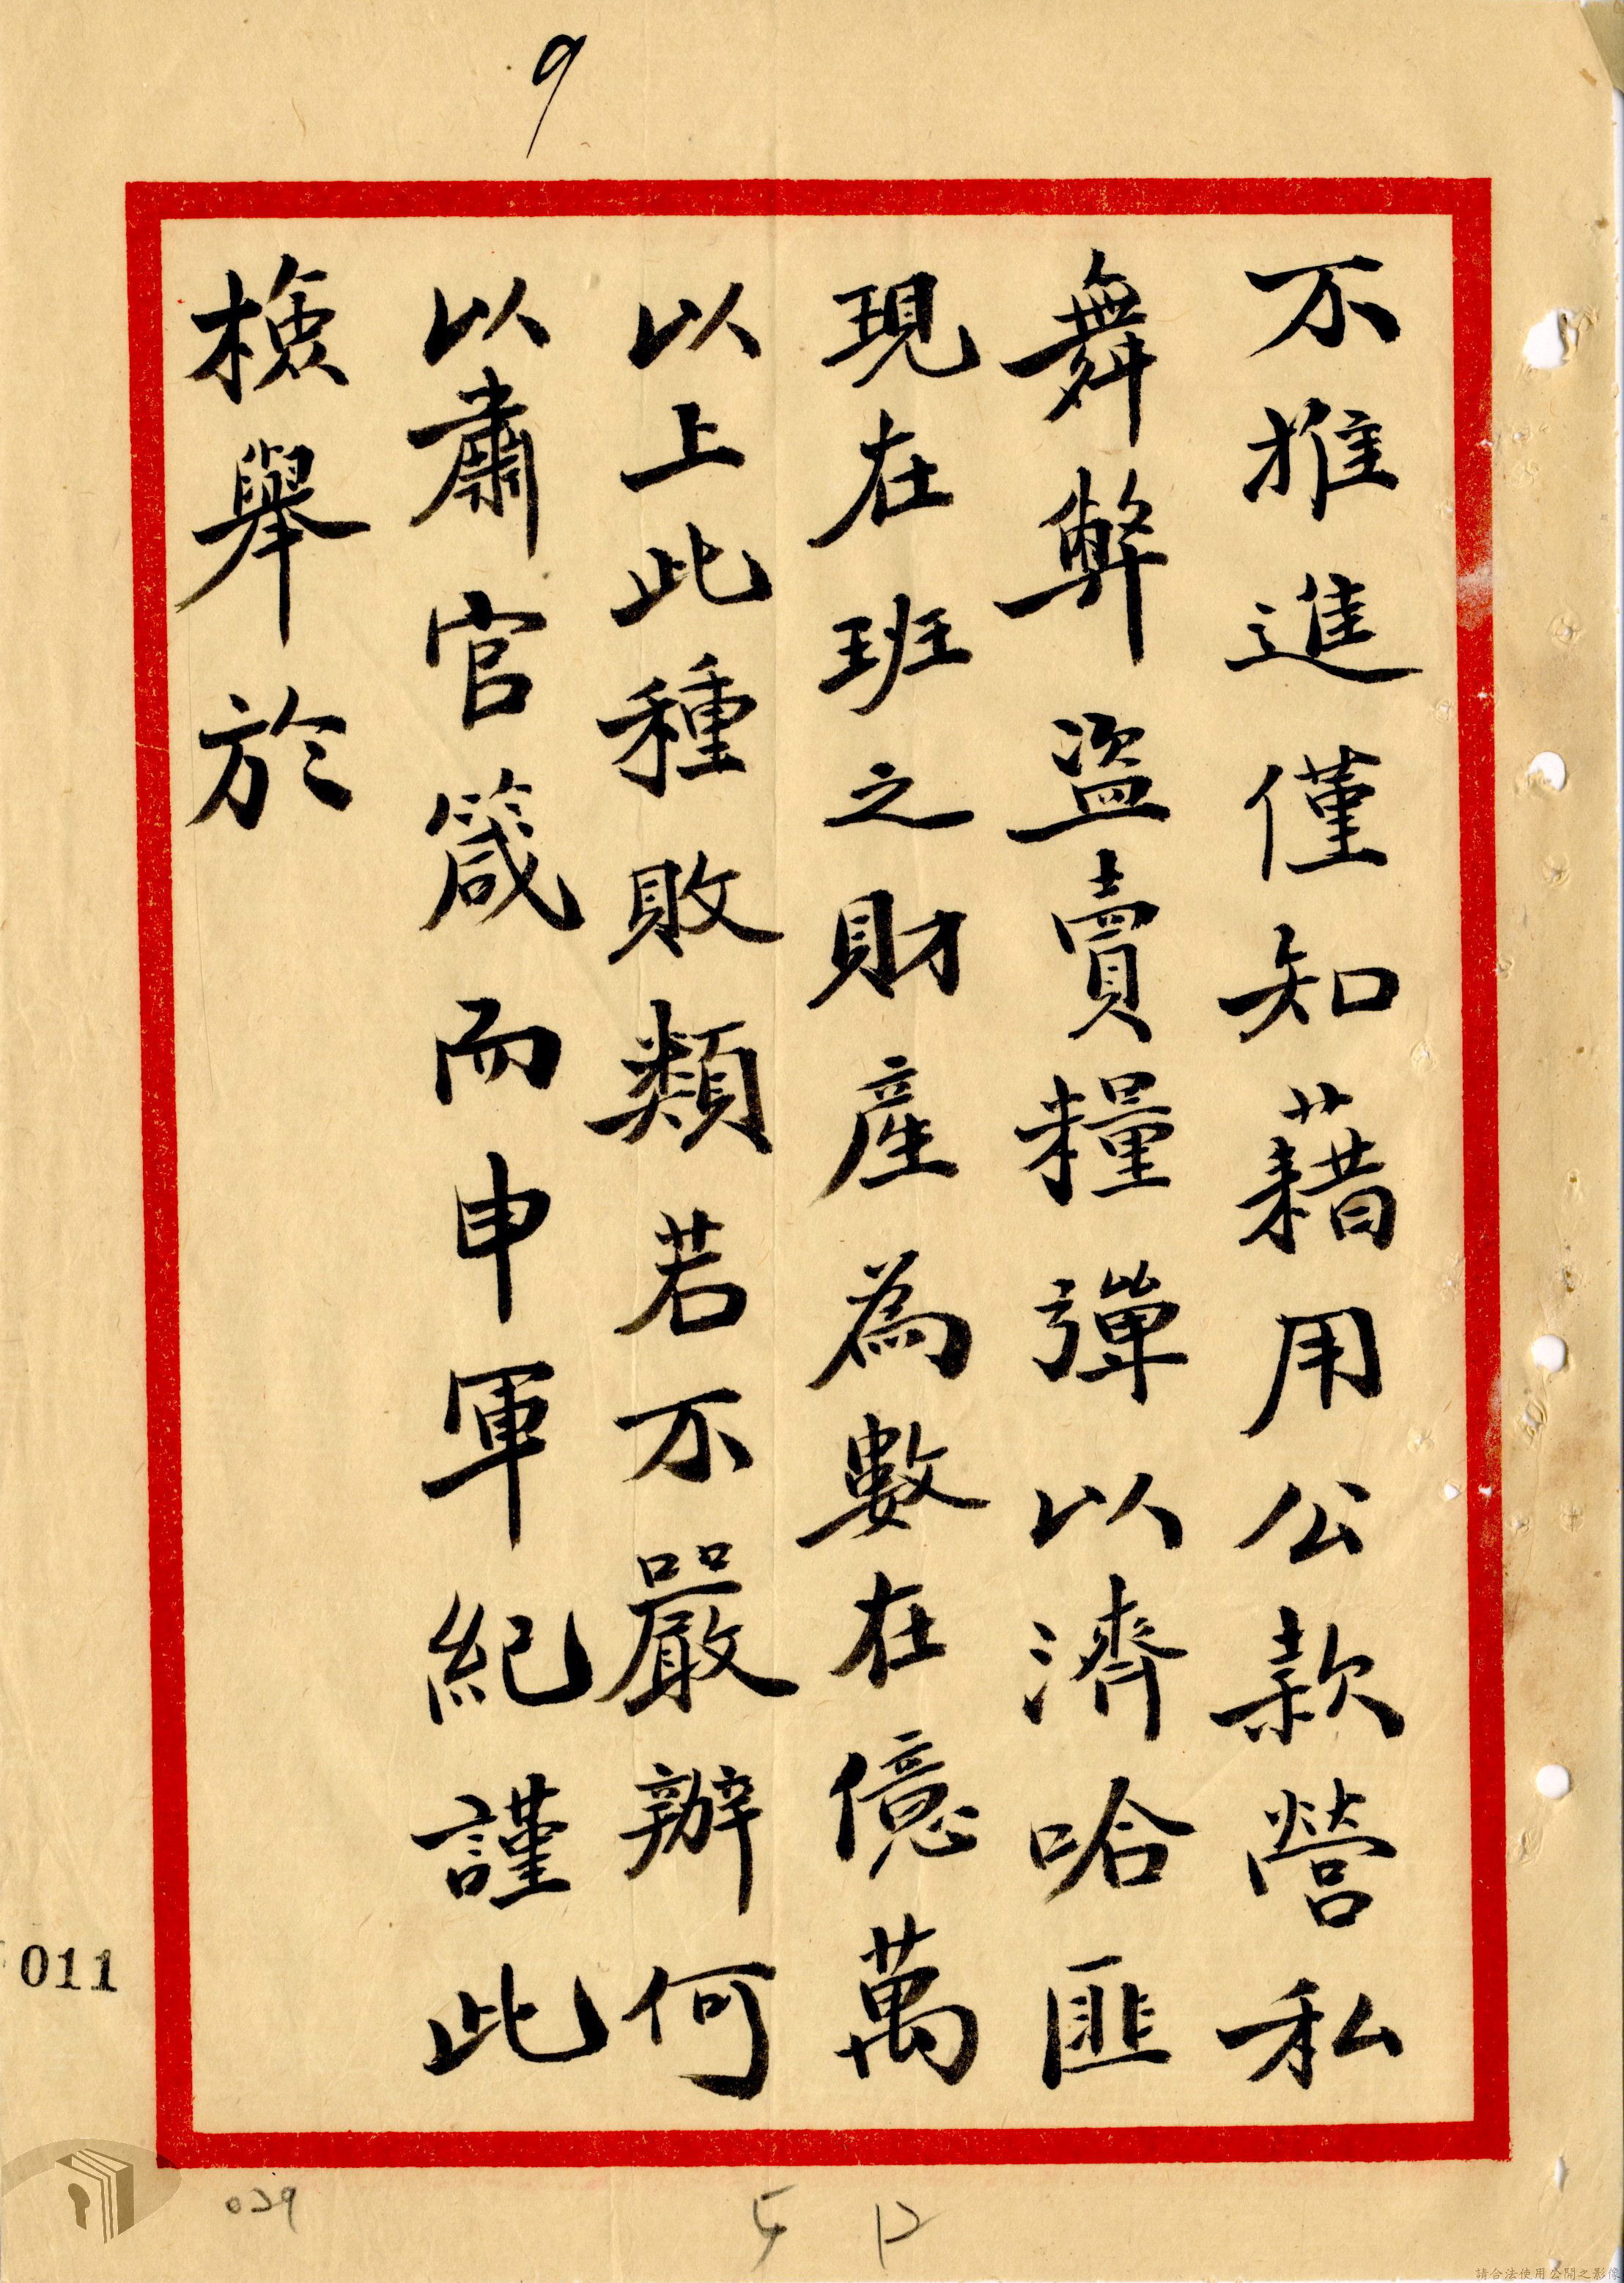 9
不推進僅知藉用公款營私
舞弊盜賣糧彈以濟哈匪
現在班之財產為數在億萬
以上此種敗類若不嚴辦何
以肅官箴而申軍紀謹此
檢舉於
011
029
12
請合法使用公開之影像